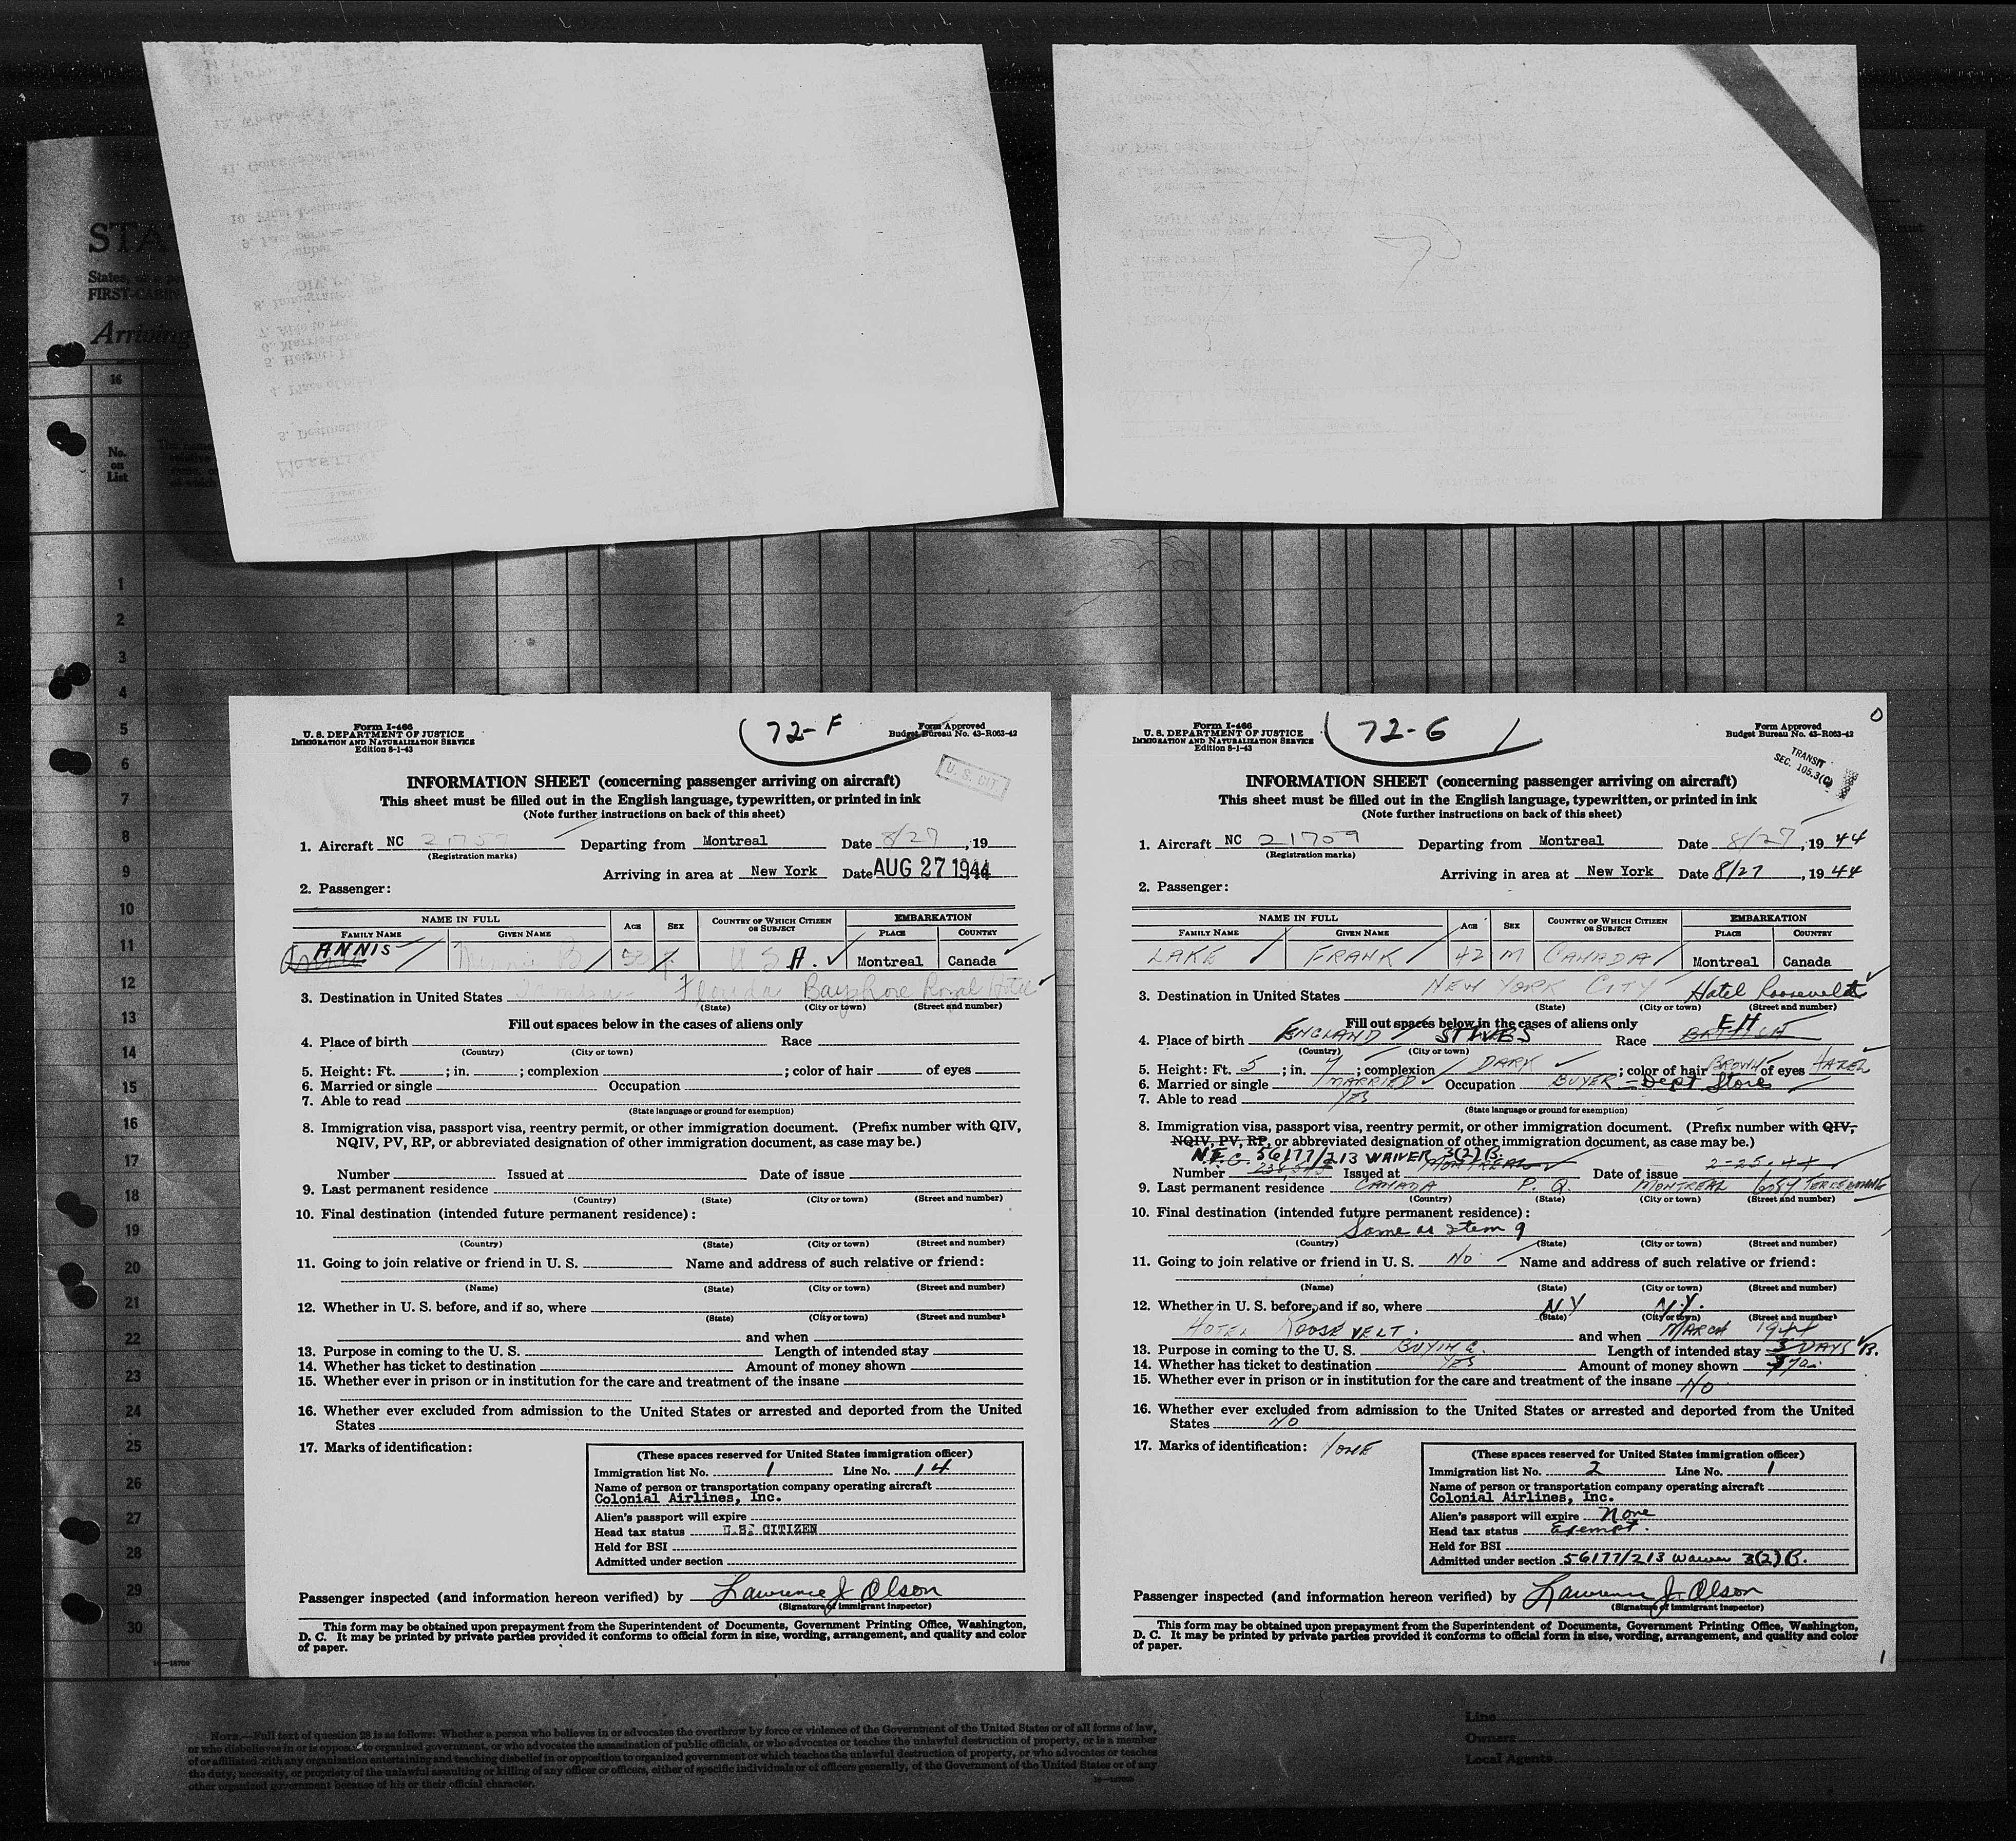 STA
States,
FIRST-CABIN
Arriving
16
No.
on
List
1
2
3
4
5
6
7
8
9
10
11
12
13
14
15
16
17
18
19
20
21
22
23
24
25
26
27
28
29
30
Form I-466
U. S. DEPARTMENT OF JUSTICE
IMMIGRATION AND NATURALIZATION SERVICE
Edition 8-1-43
72-F
Form Approved
Budget Bureau No. 43-R063-42
U. S. CIT
INFORMATION SHEET (concerning passenger arriving on aircraft)
This sheet must be filled out in the English language, typewritten, or printed in ink
(Note further instructions on back of this sheet)
1. Aircraft NC 21759 Departing from Montreal Date 8/27, 19
(Registration marks)
Arriving in area at New York Date AUG 27 1944
2. Passenger:
NAME IN FULL AGE SEX COUNTRY OF WHICH CITIZEN OR SUBJECT EMBARKATION
FAMILY NAME GIVEN NAME PLACE COUNTRY
ANNIS U S A. Montreal Canada
3. Destination in United States Tampa - Florida Bayshore Royal Hotel
(State) (City or town) (Street and number)
Fill out spaces below in the cases of aliens only
4. Place of birth Race
(Country) (City or town)
5. Height: Ft. ; in. ; complexion ; color of hair of eyes
6. Married or single Occupation
7. Able to read
(State language or ground for exemption)
8. Immigration visa, passport visa, reentry permit, or other immigration document. (Prefix number with QIV,
NQIV, PV, RP, or abbreviated designation of other immigration document, as case may be.)
Number Issued at Date of issue
9. Last permanent residence
(Country) (State) (City or town) (Street and number)
10. Final destination (intended future permanent residence):
(Country) (State) (City or town) (Street and number)
11. Going to join relative or friend in U. S. Name and address of such relative or friend:
(Name) (State) (City or town) (Street and number)
12. Whether in U. S. before, and if so, where
(State) (City or town) (Street and number)
and when
13. Purpose in coming to the U. S. Length of intended stay
14. Whether has ticket to destination Amount of money shown
15. Whether ever in prison or in institution for the care and treatment of the insane
16. Whether ever excluded from admission to the United States or arrested and deported from the United
States
17. Marks of identification:
(These spaces reserved for United States immigration officer)
Immigration list No. 1 Line No. 14
Name of person or transportation company operating aircraft
Colonial Airlines, Inc.
Alien's passport will expire
Head tax status U.S. CITIZEN
Held for BSI
Admitted under section
Passenger inspected (and information hereon verified) by Lawrence J. Olson
(Signature of immigrant inspector)
This form may be obtained upon prepayment from the Superintendent of Documents, Government Printing Office, Washington,
D. C. It may be printed by private parties provided it conforms to official form in size, wording, arrangement, and quality and color
of paper.
Form I-466
U. S. DEPARTMENT OF JUSTICE
IMMIGRATION AND NATURALIZATION SERVICE
Edition 8-1-43
72-G
Form Approved
Budget Bureau No. 43-R063-42
0
TRANSIT
SEC. 105.3(C)
INFORMATION SHEET (concerning passenger arriving on aircraft)
This sheet must be filled out in the English language, typewritten, or printed in ink
(Note further instructions on back of this sheet)
1. Aircraft NC 21759 Departing from Montreal Date 8/27, 1944
(Registration marks)
Arriving in area at New York Date 8/27, 1944
2. Passenger:
NAME IN FULL AGE SEX COUNTRY OF WHICH CITIZEN OR SUBJECT EMBARKATION
FAMILY NAME GIVEN NAME PLACE COUNTRY
LAKE FRANK 42 M CANADA Montreal Canada
3. Destination in United States NEW YORK CITY Hotel Roosevelt
(State) (City or town) (Street and number)
Fill out spaces below in the cases of aliens only EH
4. Place of birth ENGLAND Race
(Country) (City or town)
5. Height: Ft. 5 ; in. 7 ; complexion DARK ; color of hair BROWN of eyes HAZEL
6. Married or single MARRIED Occupation BUYER - Dept Store
7. Able to read YES
(State language or ground for exemption)
8. Immigration visa, passport visa, reentry permit, or other immigration document. (Prefix number with QIV,
NQIV, PV, RP, or abbreviated designation of other immigration document, as case may be.)
56177/213 WAIVER 3(2)B.
Number Issued at MONTREAL Date of issue 2-25-44
9. Last permanent residence CANADA P. Q. MONTREAL
(Country) (State) (City or town) (Street and number)
10. Final destination (intended future permanent residence):
Same as item 9
(Country) (State) (City or town) (Street and number)
11. Going to join relative or friend in U. S. No Name and address of such relative or friend:
(Name) (State) (City or town) (Street and number)
12. Whether in U. S. before, and if so, where NY N.Y.
(State) (City or town) (Street and number)
HOTEL ROOSEVELT. and when MARCH 1944
13. Purpose in coming to the U. S. BUYING. Length of intended stay 3 DAYS
14. Whether has ticket to destination YES Amount of money shown $70.
15. Whether ever in prison or in institution for the care and treatment of the insane No
16. Whether ever excluded from admission to the United States or arrested and deported from the United
States NO
17. Marks of identification: NONE
(These spaces reserved for United States immigration officer)
Immigration list No. 2 Line No. 1
Name of person or transportation company operating aircraft
Colonial Airlines, Inc.
Alien's passport will expire None
Head tax status Exempt.
Held for BSI
Admitted under section 56177/213 Waiver 3(2)B.
Passenger inspected (and information hereon verified) by Lawrence J. Olson
(Signature of immigrant inspector)
This form may be obtained upon prepayment from the Superintendent of Documents, Government Printing Office, Washington,
D. C. It may be printed by private parties provided it conforms to official form in size, wording, arrangement, and quality and color
of paper.
1
NOTE.—Full text of question 28 is as follows: Whether a person who believes in or advocates the overthrow by force or violence of the Government of the United States or of all forms of law,
or who disbelieves in or is opposed to organized government, or who advocates the assassination of public officials, or who advocates or teaches the unlawful destruction of property, or is a member
of or affiliated with any organization entertaining and teaching disbelief in or opposition to organized government or which teaches the unlawful destruction of property, or who advocates or teaches
the duty, necessity, or propriety of the unlawful assaulting or killing of any officer or officers, either of specific individuals or of officers generally, of the Government of the United States or of any
other organized government because of his or their official character.
Line
Owners
Local Agents